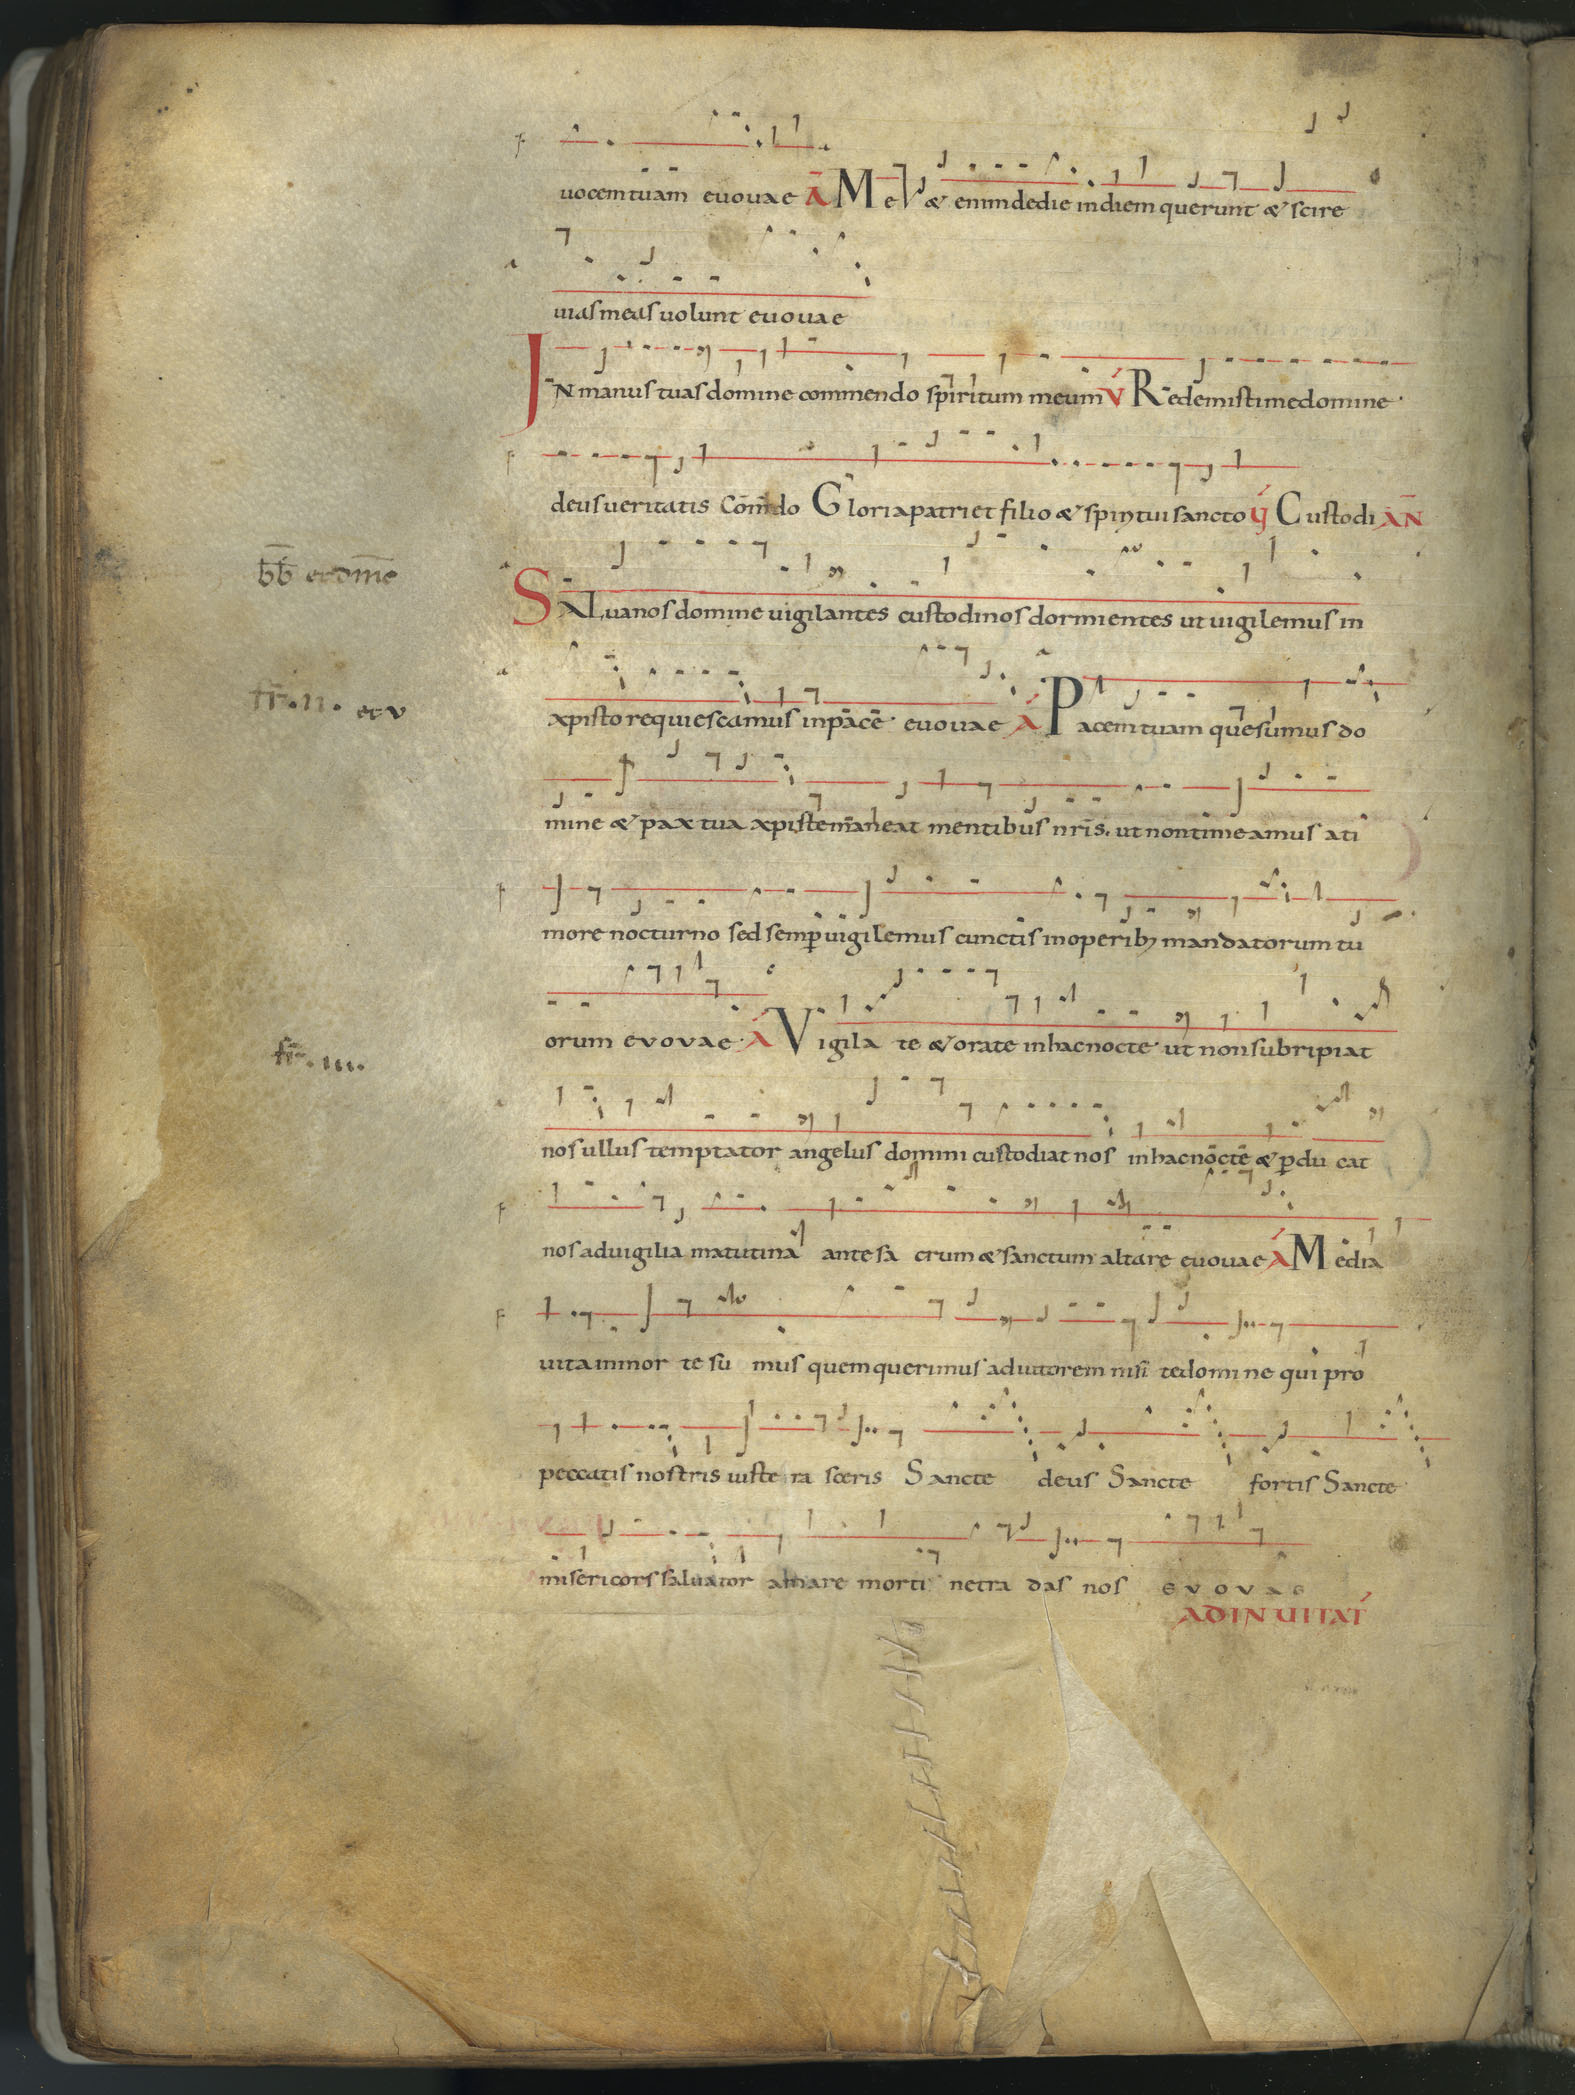 uocem tuam euouae A Me & enim de die in diem querunt & scire
uias meas uolunt euouae
IN manus tuas domine commendo spiritum meum V Redemisti me domine
deus ueritatis Com̄do Gloria patri et filio & spiritui sancto V Custodi AN
bb et dnīc
SALua nos domine uigilantes custodi nos dormientes ut uigilemus in
fr. II. et v
xpisto requiescamus in pace euouae A Pacem tuam quesumus do
mine & pax tua xpiste maneat mentibus nr̄is. ut non timeamus a ti
more nocturno sed semp uigilemus cunctis in operib; mandatorum tu
orum evovae. A Vigilate & orate in hac nocte ut non subripiat
fr. III.
nos ullus temptator angelus domini custodiat nos in hac nocte & pducat
nos ad uigilia matutina ante sacrum & sanctum altare euouae A Media
uita in morte sumus quem querimus adiutorem nisi te domine qui pro
peccatis nostris iuste irasceris Sancte deus Sancte fortis Sancte
misericors saluator amare morti ne tradas nos evovae
AD INUITAT